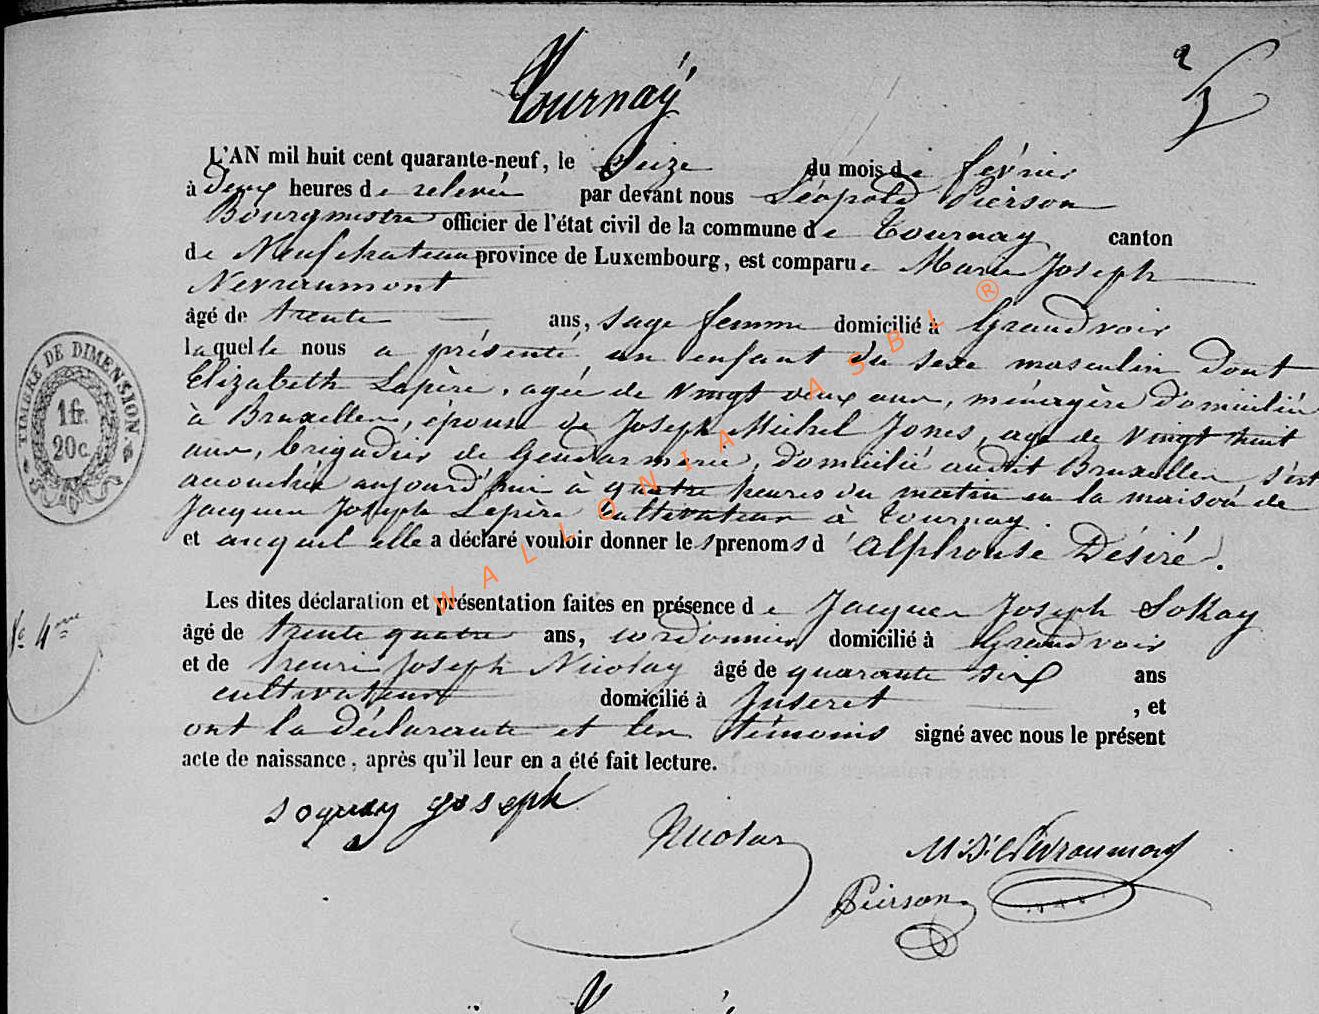 Tournaÿ
2
L'AN mil huit cent quarante-neuf, le seize du mois de février
à deux heures de relevée par devant nous Léopold Pierson
Bourgmestre officier de l'état civil de la commune de Tournay canton
de Neufchateau province de Luxembourg, est comparue Marie Joseph
Nevraumont
âgé de trente ans, sage femme domicilié à Grandvoir
laquelle nous a présenté un enfant du sexe masculin dont
Elizabeth Lapère, agée de vingt deux ans, ménagère domiciliée
à Bruxelles, épouse de Joseph Michel Jones, agé de vingt huit
ans, brigadier de Gendarmerie, domicilié audit Bruxelles, s'est
accouchée aujourd'hui à quatre heures du matin en la maison de
Jacques Joseph Lepère cultivateur à Tournay.
et auquel elle a déclaré vouloir donner les prenoms d'Alphonse Désiré.
Les dites déclaration et présentation faites en présence de Jacques Joseph Sokay
N° 4me
âgé de trente quatre ans, cordonnier domicilié à Grandvoir
et de henri Joseph Nicolay âgé de quarante six ans
cultivateur domicilié à Juseret , et
ont la déclarante et les témoins signé avec nous le présent
acte de naissance, après qu'il leur en a été fait lecture.
soquay joseph
Nicolas
M:J: Nevraumont
Pierson
TIMBRE DE DIMENSION.
1fr.
20c.
WALLONIA ASBL ®